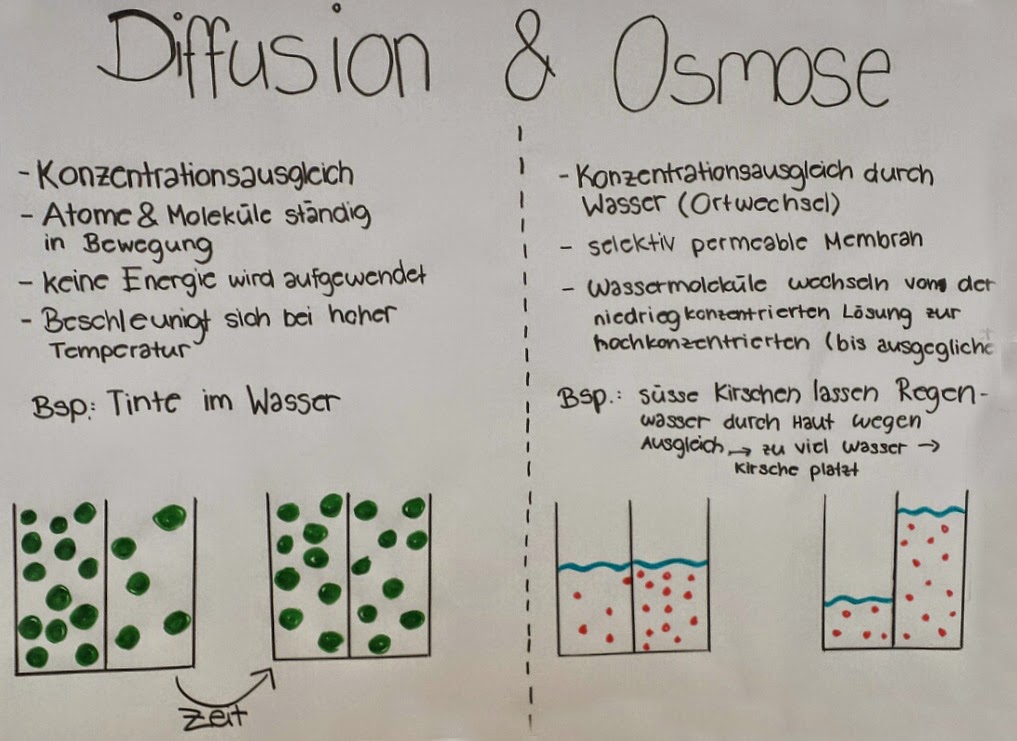 Diffusion & Osmose
- Konzentrationsausgleich
- Atome & Moleküle ständig
in Bewegung
- keine Energie wird aufgewendet
- Beschleunigt sich bei hoher
Temperatur
Bsp.: Tinte im Wasser
Zeit
- Konzentrationsausgleich durch
Wasser (Ortwechsel)
- selektiv permeable Membran
- Wassermoleküle wechseln von der
niedriegkonzentrierten Lösung zur
hochkonzentrierten (bis ausgegliche
Bsp.: süsse Kirschen lassen Regen-
wasser durch Haut wegen
Ausgleich → zu viel wasser →
Kirsche platzt